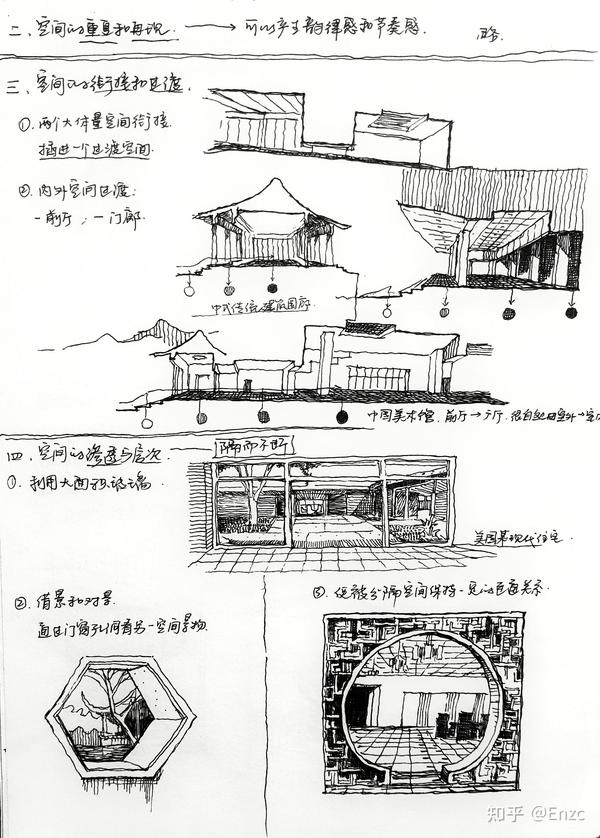 二、空间的重复和再现 → 可以产生韵律感和节奏感. 略.
三、空间的衔接和过渡
①. 两个大体量空间衔接.
插进一个过渡空间.
②. 内外空间过渡:
- 前厅 ; - 门廊.
中式传统建筑围廊
中国美术馆. 前厅→门厅.
四. 空间的渗透与层次 隔而不断
①. 利用大面积玻璃墙.
美国某现代住宅.
②. 借景和对景.
通过门窗孔洞看另一空间景物.
③. 使被分隔空间保持一定的连通关系.
知乎 @Enzc